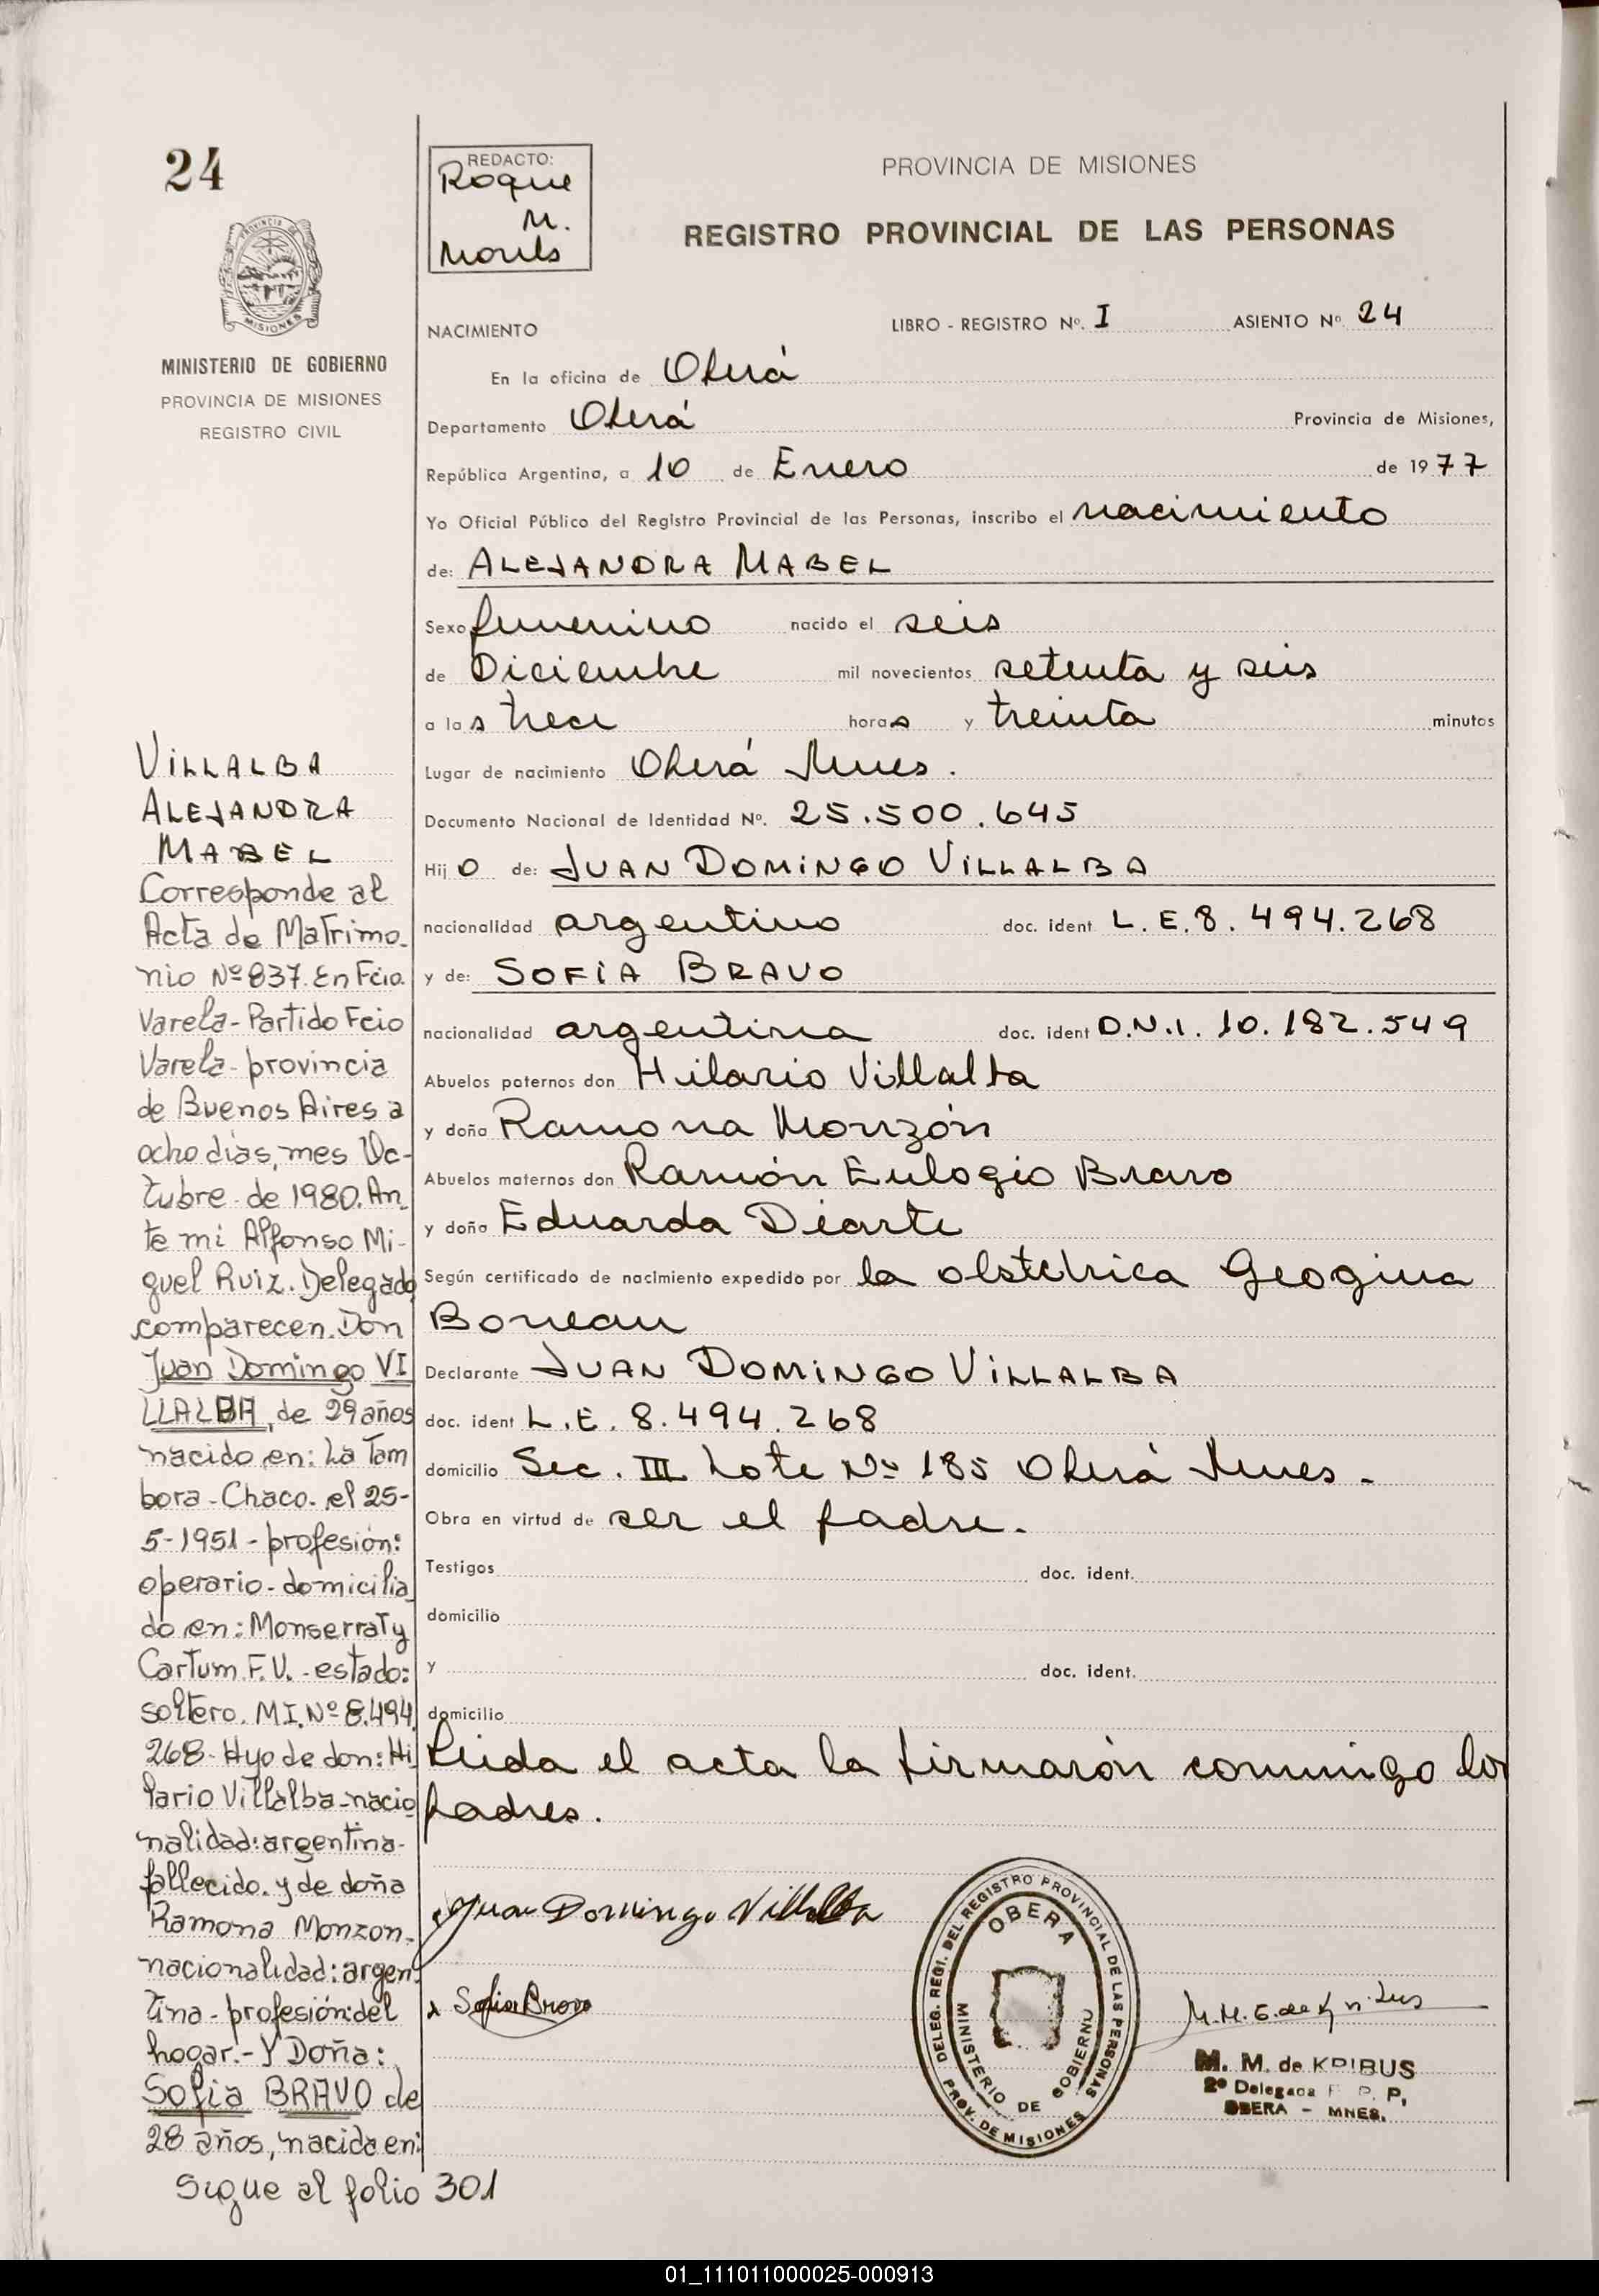 24
PROVINCIA DE MISIONES
MINISTERIO DE GOBIERNO
PROVINCIA DE MISIONES
REGISTRO CIVIL
VILLALBA
ALEJANDRA
MABEL
Corresponde al
Acta de Matrimo-
nio Nº 837. En Fcio.
Varela - Partido Fcio
Varela - provincia
de Buenos Aires a
ocho dias, mes Oc-
tubre de 1980. An-
te mi Alfonso Mi-
guel Ruiz. Delegado
comparecen. Don
Juan Domingo VI
LLALBA, de 29 años
nacido en: La Tam
bora - Chaco. el 25-
5-1951 - profesión:
operario - domicilia
do en: Monserrat y
Cartum F.V. - estado:
soltero. M.I. Nº 8.494
268 - Hijo de don: Hi
lario Villalba - nacio
nalidad: argentina -
fallecido. y de doña
Ramona Monzon.
nacionalidad: argen-
tina - profesión: del
hogar. - Y Doña:
Sofia BRAVO de
28 años, nacida en:
Sigue al folio 301
REDACTO:
Roque
M.
PROVINCIA DE MISIONES
REGISTRO PROVINCIAL DE LAS PERSONAS
NACIMIENTO LIBRO - REGISTRO Nº. I ASIENTO Nº 24
En la oficina de Oberá
Departamento Oberá Provincia de Misiones,
República Argentina, a 10 de Enero de 1977
Yo Oficial Público del Registro Provincial de las Personas, inscribo el nacimiento
de: ALEJANDRA MABEL
Sexo femenino nacido el seis
de Diciembre mil novecientos setenta y seis
a las trece horas y treinta minutos
Lugar de nacimiento Oberá Mnes.
Documento Nacional de Identidad Nº. 25.500.645
Hijo de: JUAN DOMINGO VILLALBA
nacionalidad argentino doc. ident L.E. 8.494.268
y de: SOFIA BRAVO
nacionalidad argentina doc. ident D.N.I. 10.182.549
Abuelos paternos don Hilario Villalba
y doña Ramona Monzón
Abuelos maternos don Ramón Eulogio Bravo
y doña Eduarda Diarte
Según certificado de nacimiento expedido por la obstetrica Geogina
Boneau
Declarante JUAN DOMINGO VILLALBA
doc. ident L.E. 8.494.268
domicilio Sec. III Lote Nº 185 Oberá Mnes -
Obra en virtud de ser el padre.
Testigos doc. ident.
domicilio
y doc. ident.
domicilio
Leida el acta la firmarón conmigo los
padres.
Juan Domingo Villalba
Sofia Bravo
DELEG. REGI. DEL REGISTRO PROVINCIAL DE LAS PERSONAS
OBERA
MINISTERIO DE GOBIERNO
PROV. DE MISIONES
M. M. de KRIBUS
2º Delegada R. P. P.
OBERA - MNES.
01_111011000025-000913